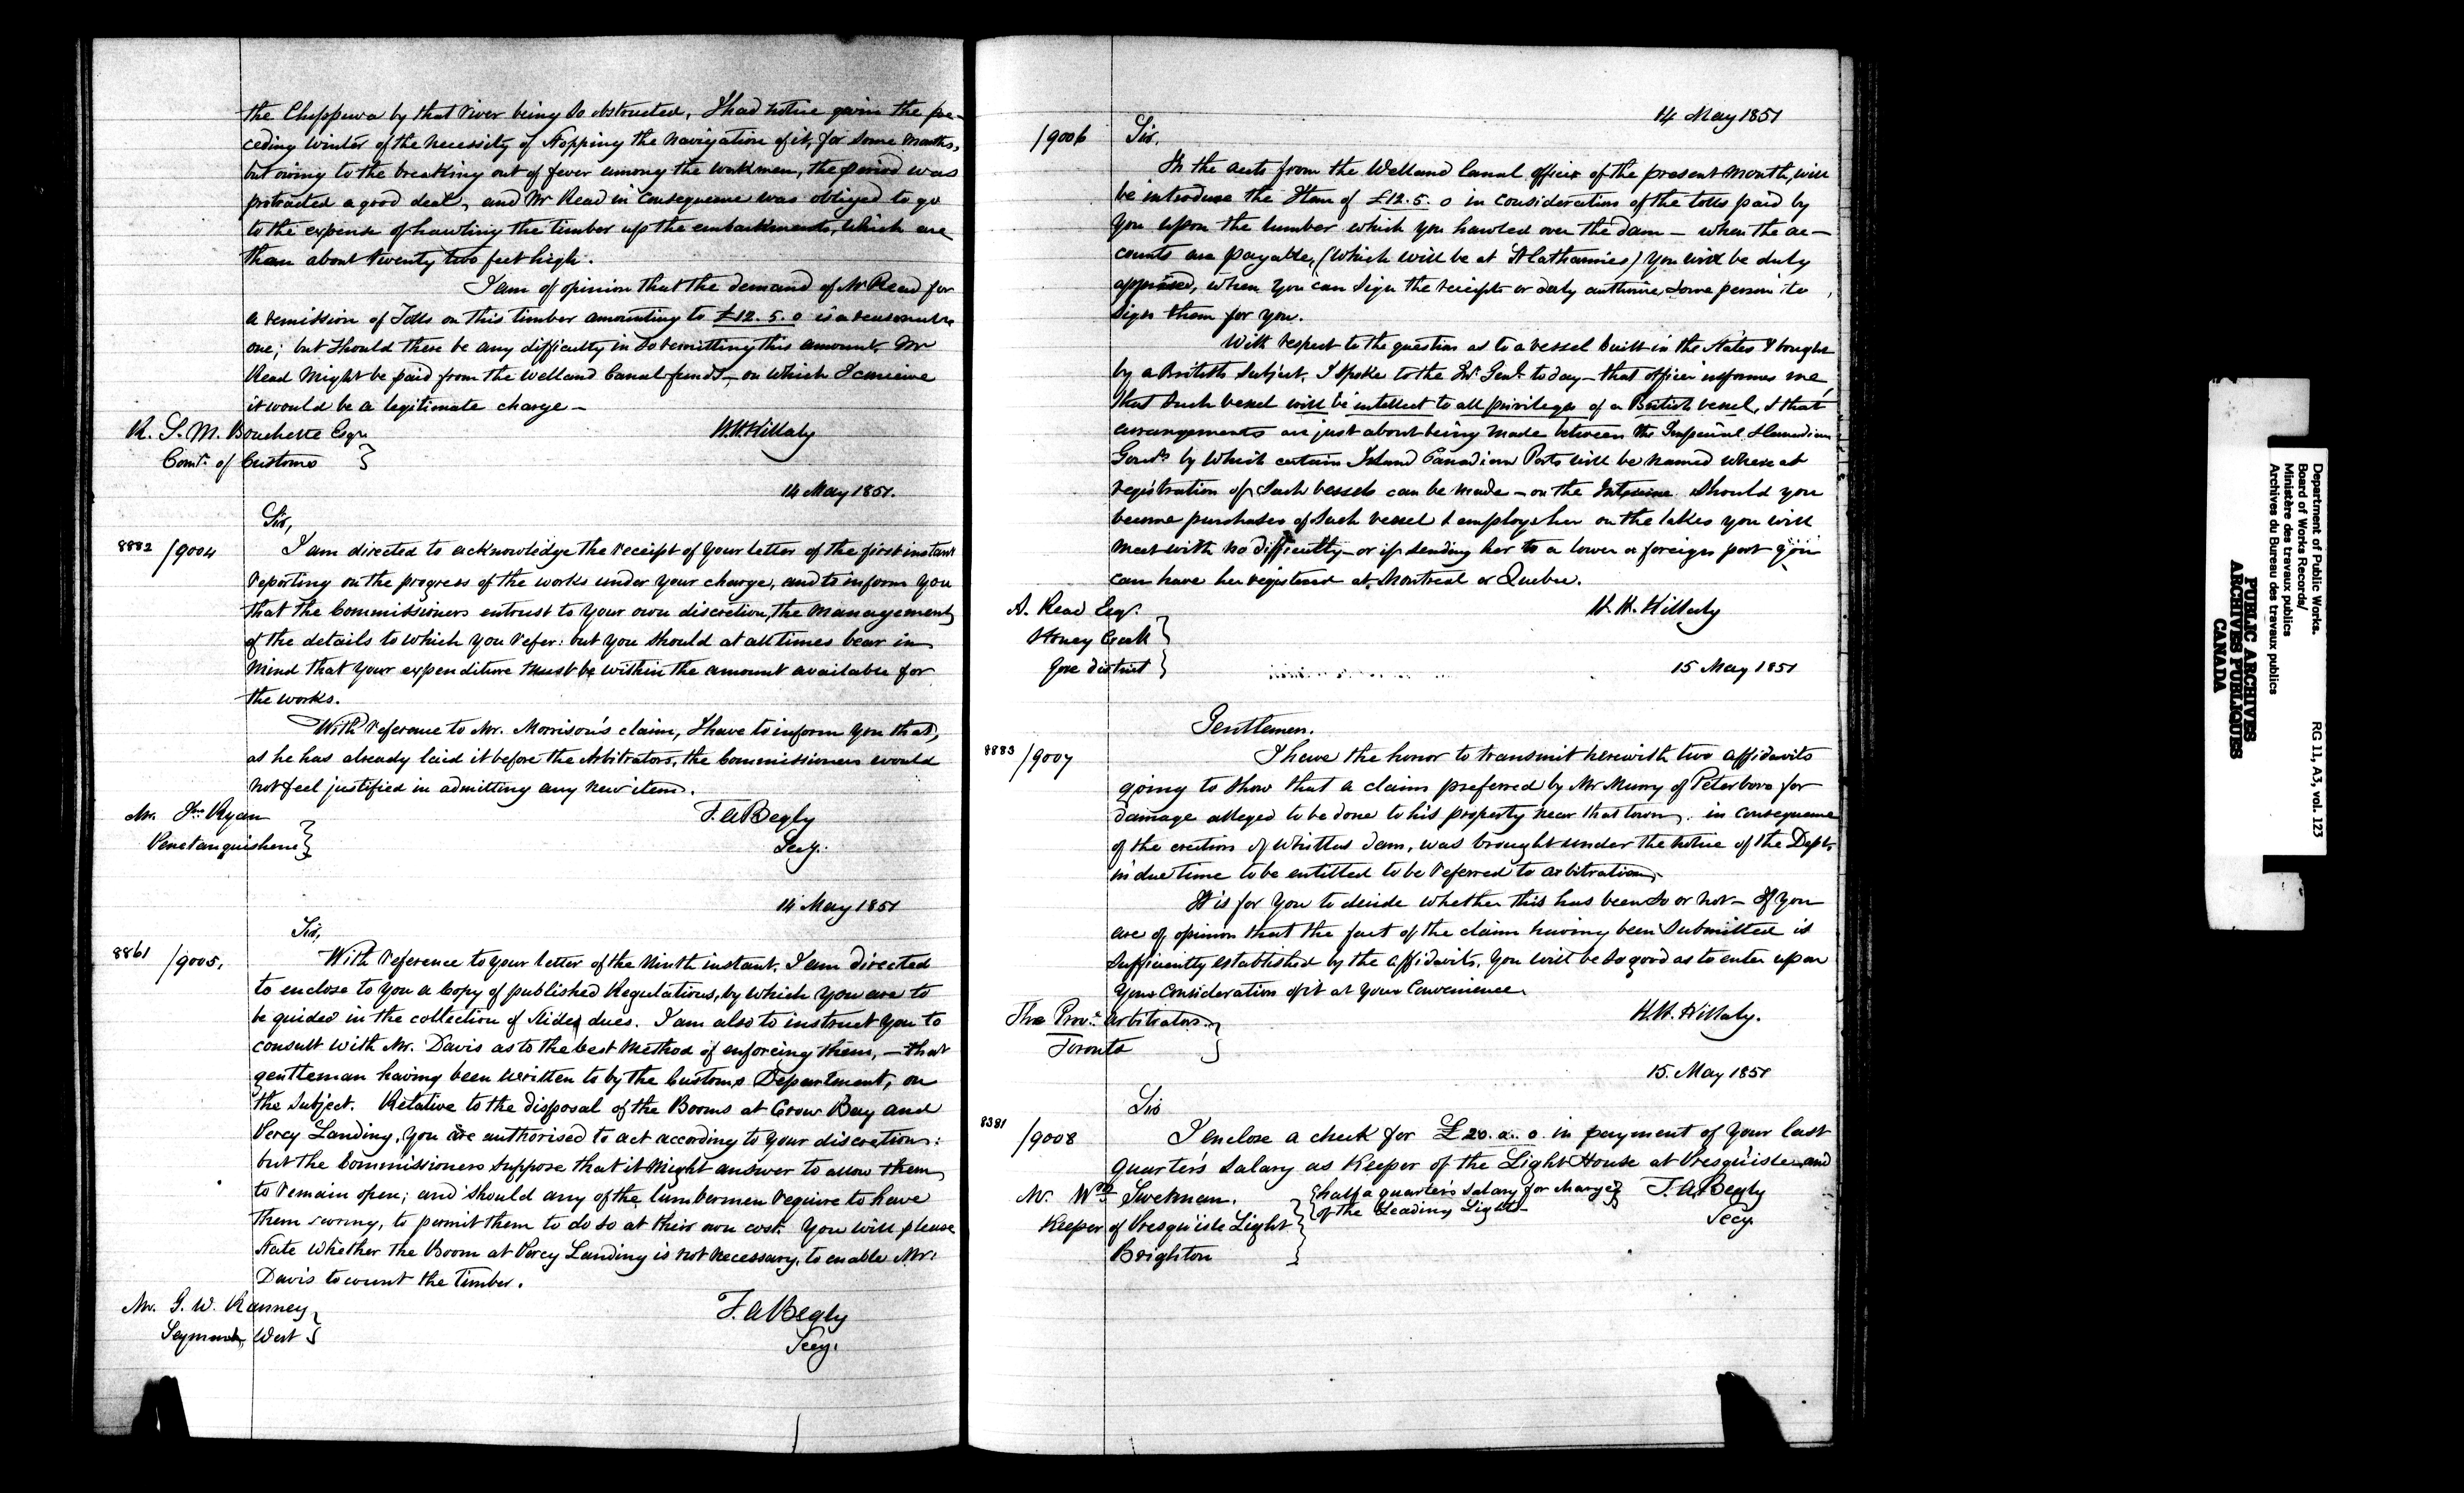 the Chippewa by that river being so obstructed, I had notice given the pre-
ceding winter of the necessity of stopping the navigation of it, for some months,
but owing to the breaking out of fever among the workmen, the period was
protracted a good deal, and Mr Read in consequence was obliged to go
to the expense of hawling the timber up the embankments, which are
than about twenty two feet high.
I am of opinion that the demand of Mr Read for
a remission of Tolls on this timber amounting to £12. 5. 0 is a reasonable
one; but should there be any difficulty in so remitting this amount, Mr
Read might be paid from the Welland Canal funds, on which I conceive
it would be a legitimate charge –
R. S. M. Bouchette Esqr
H.H. Killaly
Comr. of Customs
14 May 1851.
Sir,
8882 /9004
I am directed to acknowledge the receipt of your letter of the first instant
reporting on the progress of the works under your charge, and to inform you
that the Commissioners entrust to your own discretion, the management
of the details to which you refer: but you should at all times bear in
mind that your expenditure must be within the amount available for
the works.
With reference to Mr. Morrison's claim, I have to inform you that,
as he has already laid it before the Arbitrators, the Commissioners would
not feel justified in admitting any new item.
Mr. Jno Ryan
F. A Begly
Penetanguishene
Secy.
14 May 1851
Sir,
8861 /9005.
With reference to your letter of the ninth instant, I am directed
to enclose to you a Copy of published Regulations, by which you are to
be guided in the collection of slide dues. I am also to instruct you to
consult with Mr. Davis as to the best method of enforcing them, – that
gentleman having been written to by the Customs Department, on
the subject. Relative to the disposal of the Booms at Crow Bay and
Percy Landing, you are authorised to act according to your discretion:
but the Commissioners suppose that it might answer to allow them
to remain open; and should any of the lumbermen require to have
them swung, to permit them to do so at their own cost. You will please
state whether the Boom at Percy Landing is not necessary, to enable Mr.
Davis to count the timber.
Mr. G. W. Ranney
F. A Begly
Seymour West
Secy.
14 May 1851
/9006 Sir.
In the accts from the Welland Canal office of the present month, will
be introduce the Item of £12. 5. 0 in consideration of the tolls paid by
you upon the lumber which you hawled over the dam – when the ac–
counts are payable, (which will be at St Catharines) you will be duly
apprised, when you can sign the receipts or duly authorise some person to
sign them for you.
With respect to the question as to a vessel built in the States & bought
by a British subject, I spoke to the Inr. Genl. today – that officer informs me
that such vessel will be intellect to all privileges of a British vessel, & that
arrangements are just about being made between the Imperial & Canadian
Govts by which certain Inland Canadian Ports will be named where at
registration of such vessels can be made – on the Interim should you
become purchaser of such vessel & employ her on the lakes you will
meet with no difficulty – or if sending her to a lower or foreign port you
can have her registered at Montreal or Quebec.
A. Read Esqr.
H. H. Killaly
Stoney Creek
Gore District
15 May 1851
Gentlemen.
8883 /9007
I have the honor to transmit herewith two affidavits
going to show that a claim preferred by Mr Murry of Peterboro for
damage alleged to be done to his property near that town, in consequence
of the erection of Whitlas dam, was brought under the notice of the Dept.
in due time to be entitled to be referred to arbitration,
It is for you to decide whether this has been so or not – If you
are of opinion that the fact of the claim having been submitted is
sufficiently established by the affidavits, you will be so good as to enter upon
your consideration of it at your convenience
The Prov. Arbitrators
H.H. Killaly.
Toronto
15. May 1851
Sir
8381 /9008
I enclose a check for £20. 0. 0. in payment of your last
quarter's salary as Keeper of the Light House at Presqu'isle and
Mr. Wm Swetman.
half a quarter's salary for charge
F. A. Begly
of the Leading Lights
Keeper of Presqu'isle Light
Secy.
Brighton
Department of Public Works. RG 11, A3, vol. 123
Board of Works Records/
Ministère des travaux publics
Archives du Bureau des travaux publics
PUBLIC ARCHIVES
ARCHIVES PUBLIQUES
CANADA